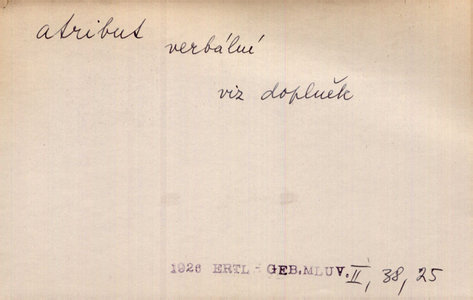 atribut verbální
viz doplněk
1926 ERTL - GEB.MLUV. II, 38, 25